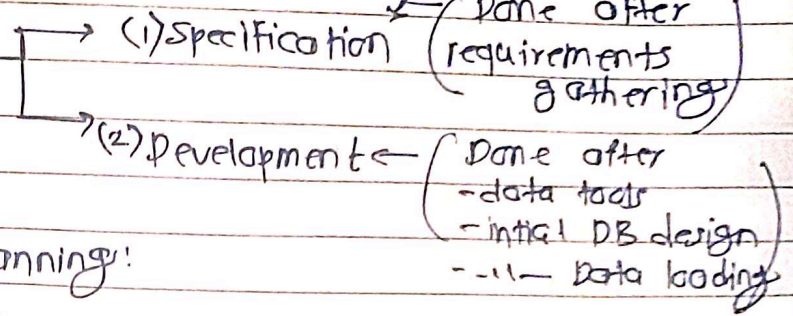 Done after
(1) Specification
requirements
gathering
(2) Development
Done after
- data tools
- intial DB design
- -11- Data loading
anning: